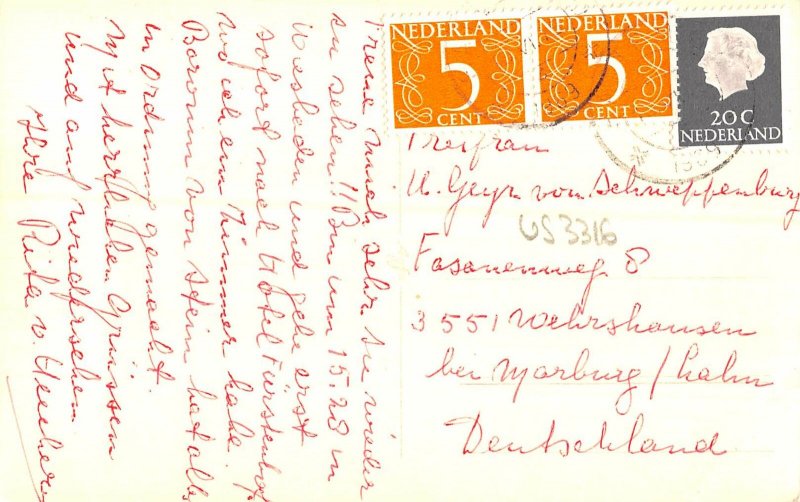 Freue mich sehr Sie wieder
zu sehen!! Bin um 15.28 in
Wiesbaden und gehe erst
sofort nach Hotel Fürstenhof
wo ich ein Zimmer habe.
Baronin von Stein hat alles
in Ordnung gemacht.
Mit herzlichen Grüssen
und auf wiedersehen
Ihre Rita v
NEDERLAND
5
CENT
NEDERLAND
5
CENT
20C
NEDERLAND
1969
Freifrau
U. Geyr von Schweppenburg
US3316
Fasanenweg 8
3551 Wehrshausen
bei Marburg/Lahn
Deutschland